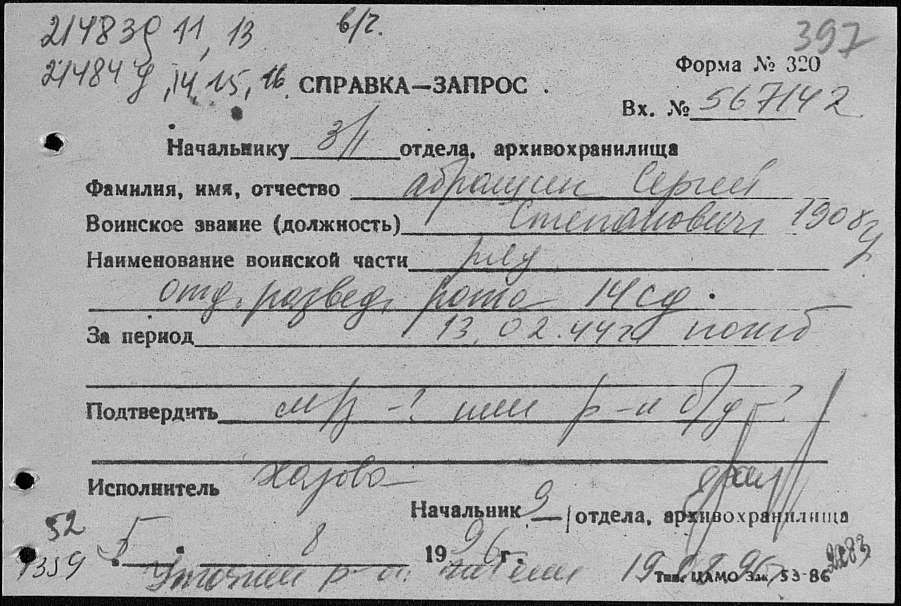 21483д 11, 13 в/г. 397
21484д, 14, 15, 16. СПРАВКА—ЗАПРОС. Форма № 320
Вх. № 567142
Начальнику 3/1 отдела, архивохранилища
Фамилия, имя, отчество Абрамин Сергей
Воинское звание (должность) Степанович, 1908 г.
Наименование воинской части ряд
отд. развед. рота 14 сд.
За период 13.02.44г погиб
Подтвердить м/р -? или р-н б/д -?
Исполнитель
Начальник 9 отдела, архивохранилища
52 5. 8 1996 г.
1359 Уточнен р-н гибели 19 Тип. ЦАМО Зак. 53-86